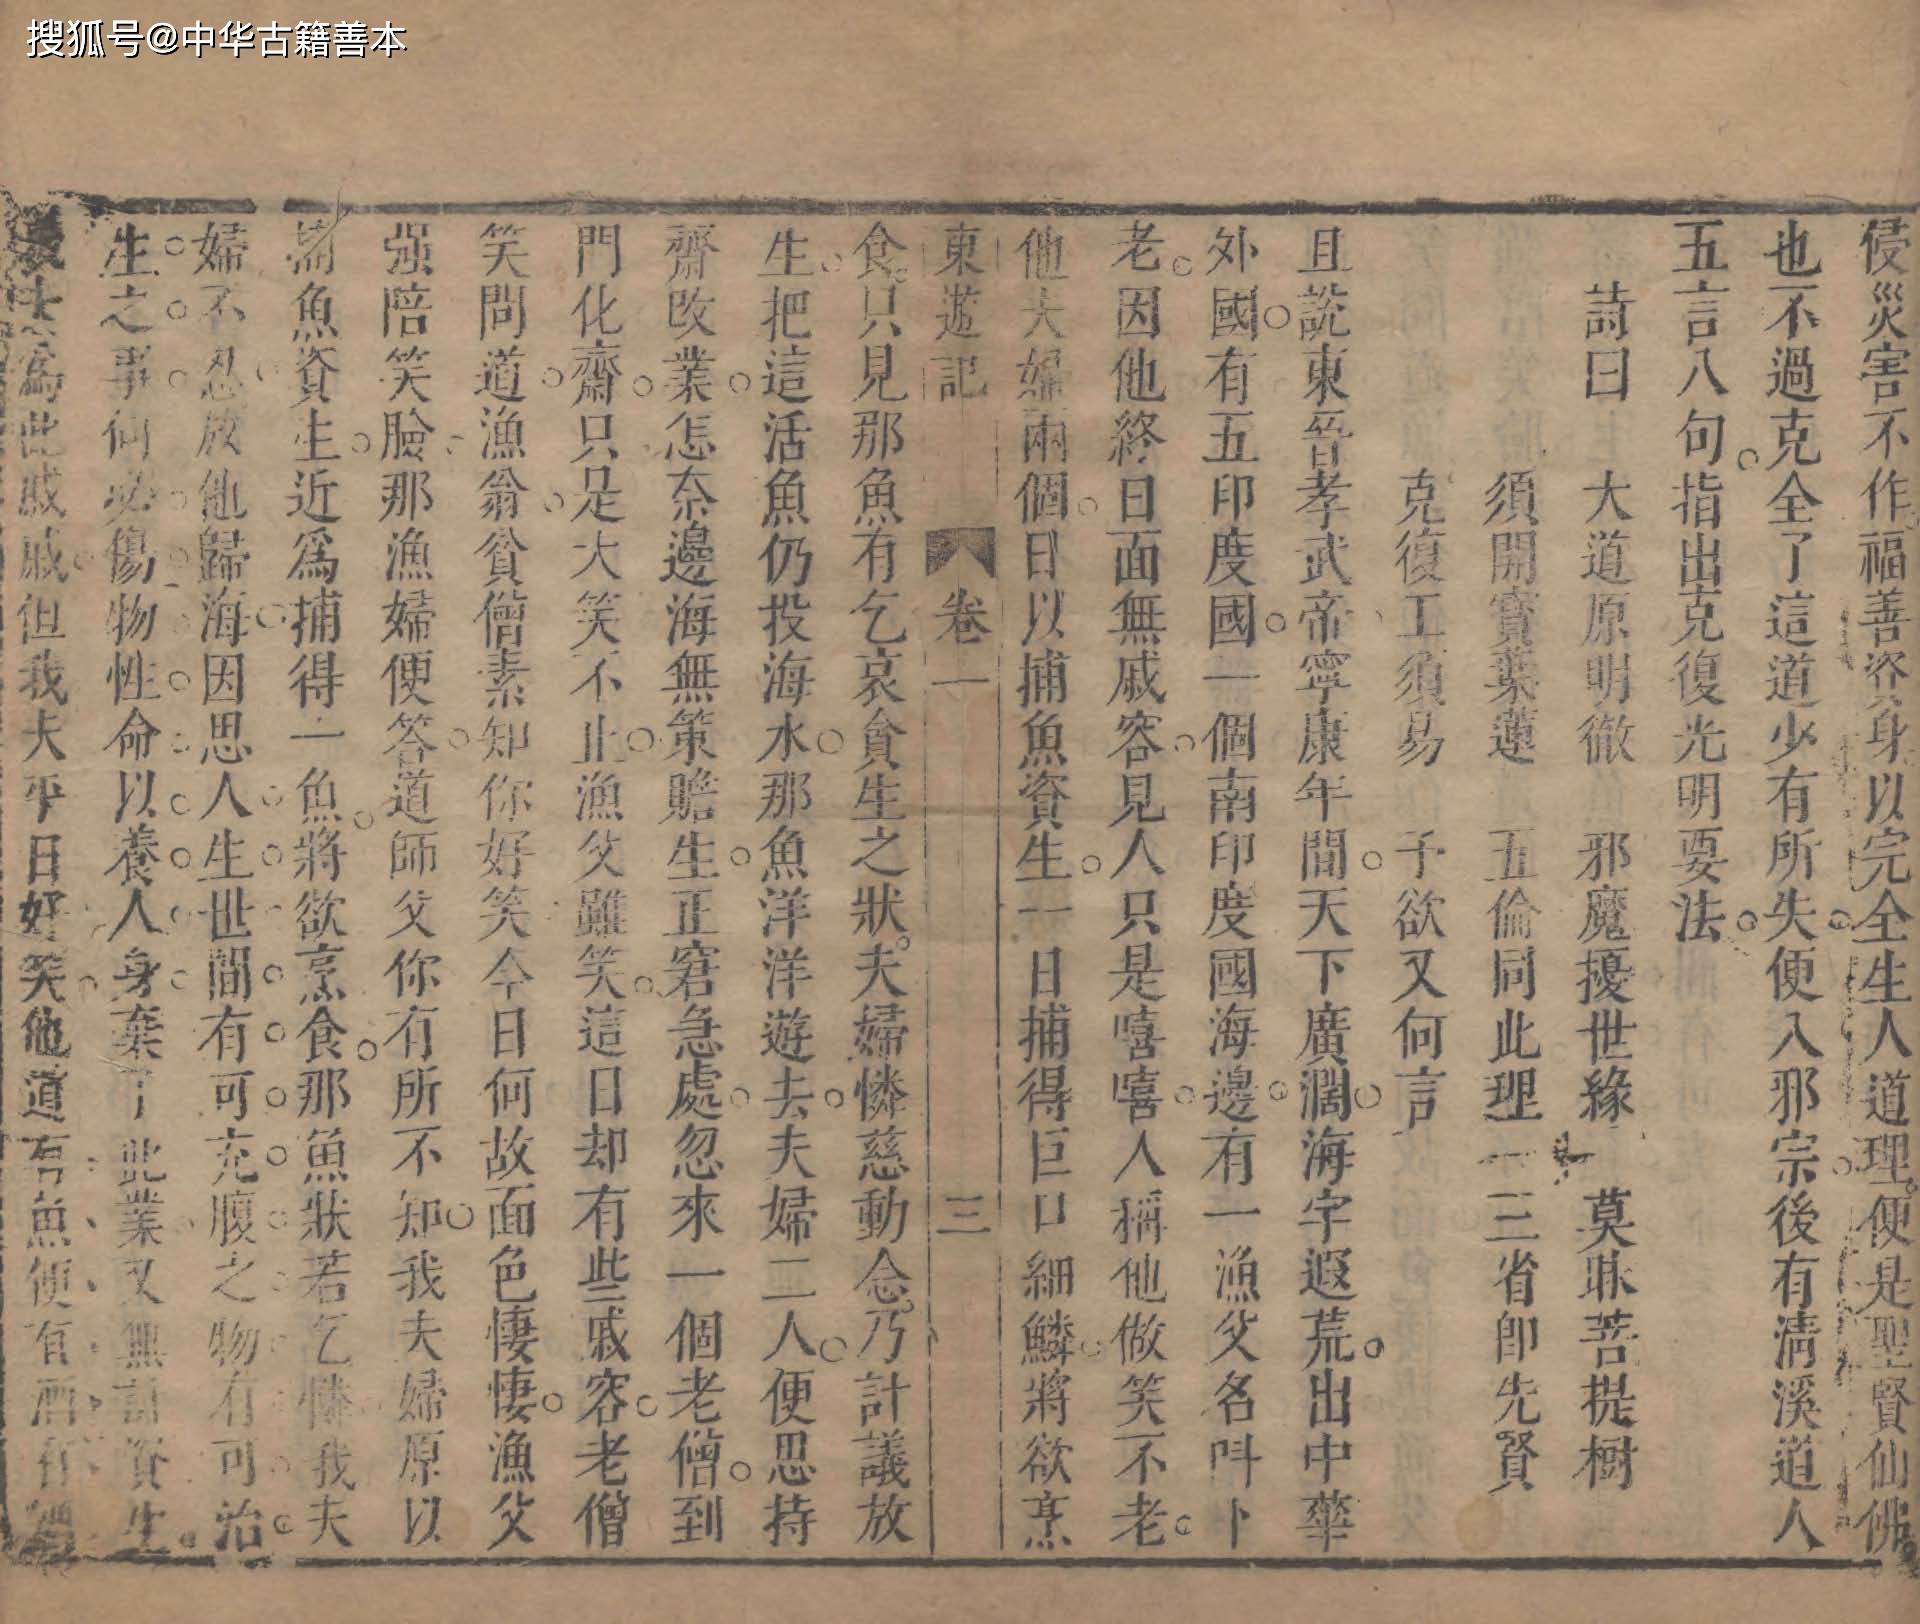 搜狐号@中华古籍善本
侵災害不作福善淡身以完全生人道理便是聖賢仙佛
也不過克全了這道少有所失便入邪宗後有清溪道人
五言八句指出克復光明要法
詩曰 大道原明徹 邪魔擾世緣 莫昧菩提樹
須開寶葉蓮 五倫同此理 一三省即先賢
克復工須易 予欲又何言
且說東晉孝武帝寧康年間天下廣濶海宇遐荒出中華
外國有五印度國一個南印度國海邊有一漁父名呌卜
老因他終日面無戚容見人只是嘻嘻人稱他做笑不老
他夫婦兩個日以捕魚資生一日捕得巨口細鱗將欲烹
東遊記 卷一 三
食只見那魚有乞哀貪生之狀夫婦憐慈動念乃計議放
生把這活魚仍投海水那魚洋洋遊去夫婦二人便思持
齋改業怎奈邊海無策贍生正窘急處忽來一個老僧到
門化齋只是大笑不止漁父雖笑這日却有些戚容老僧
笑問道漁翁貧僧素知你好笑今日何故面色悽悽漁父
强陪笑臉那漁婦便答道師父你有所不知我夫婦原以
捕魚資生近爲捕得一魚將欲烹食那魚狀若乞憐我夫
婦不忍放他歸海因思人生世間有可充腹之物有可治
生之事何必傷物性命以養人身棄了此業又無計資生
爲此戚戚但我夫平日好笑他道有魚便有酒有